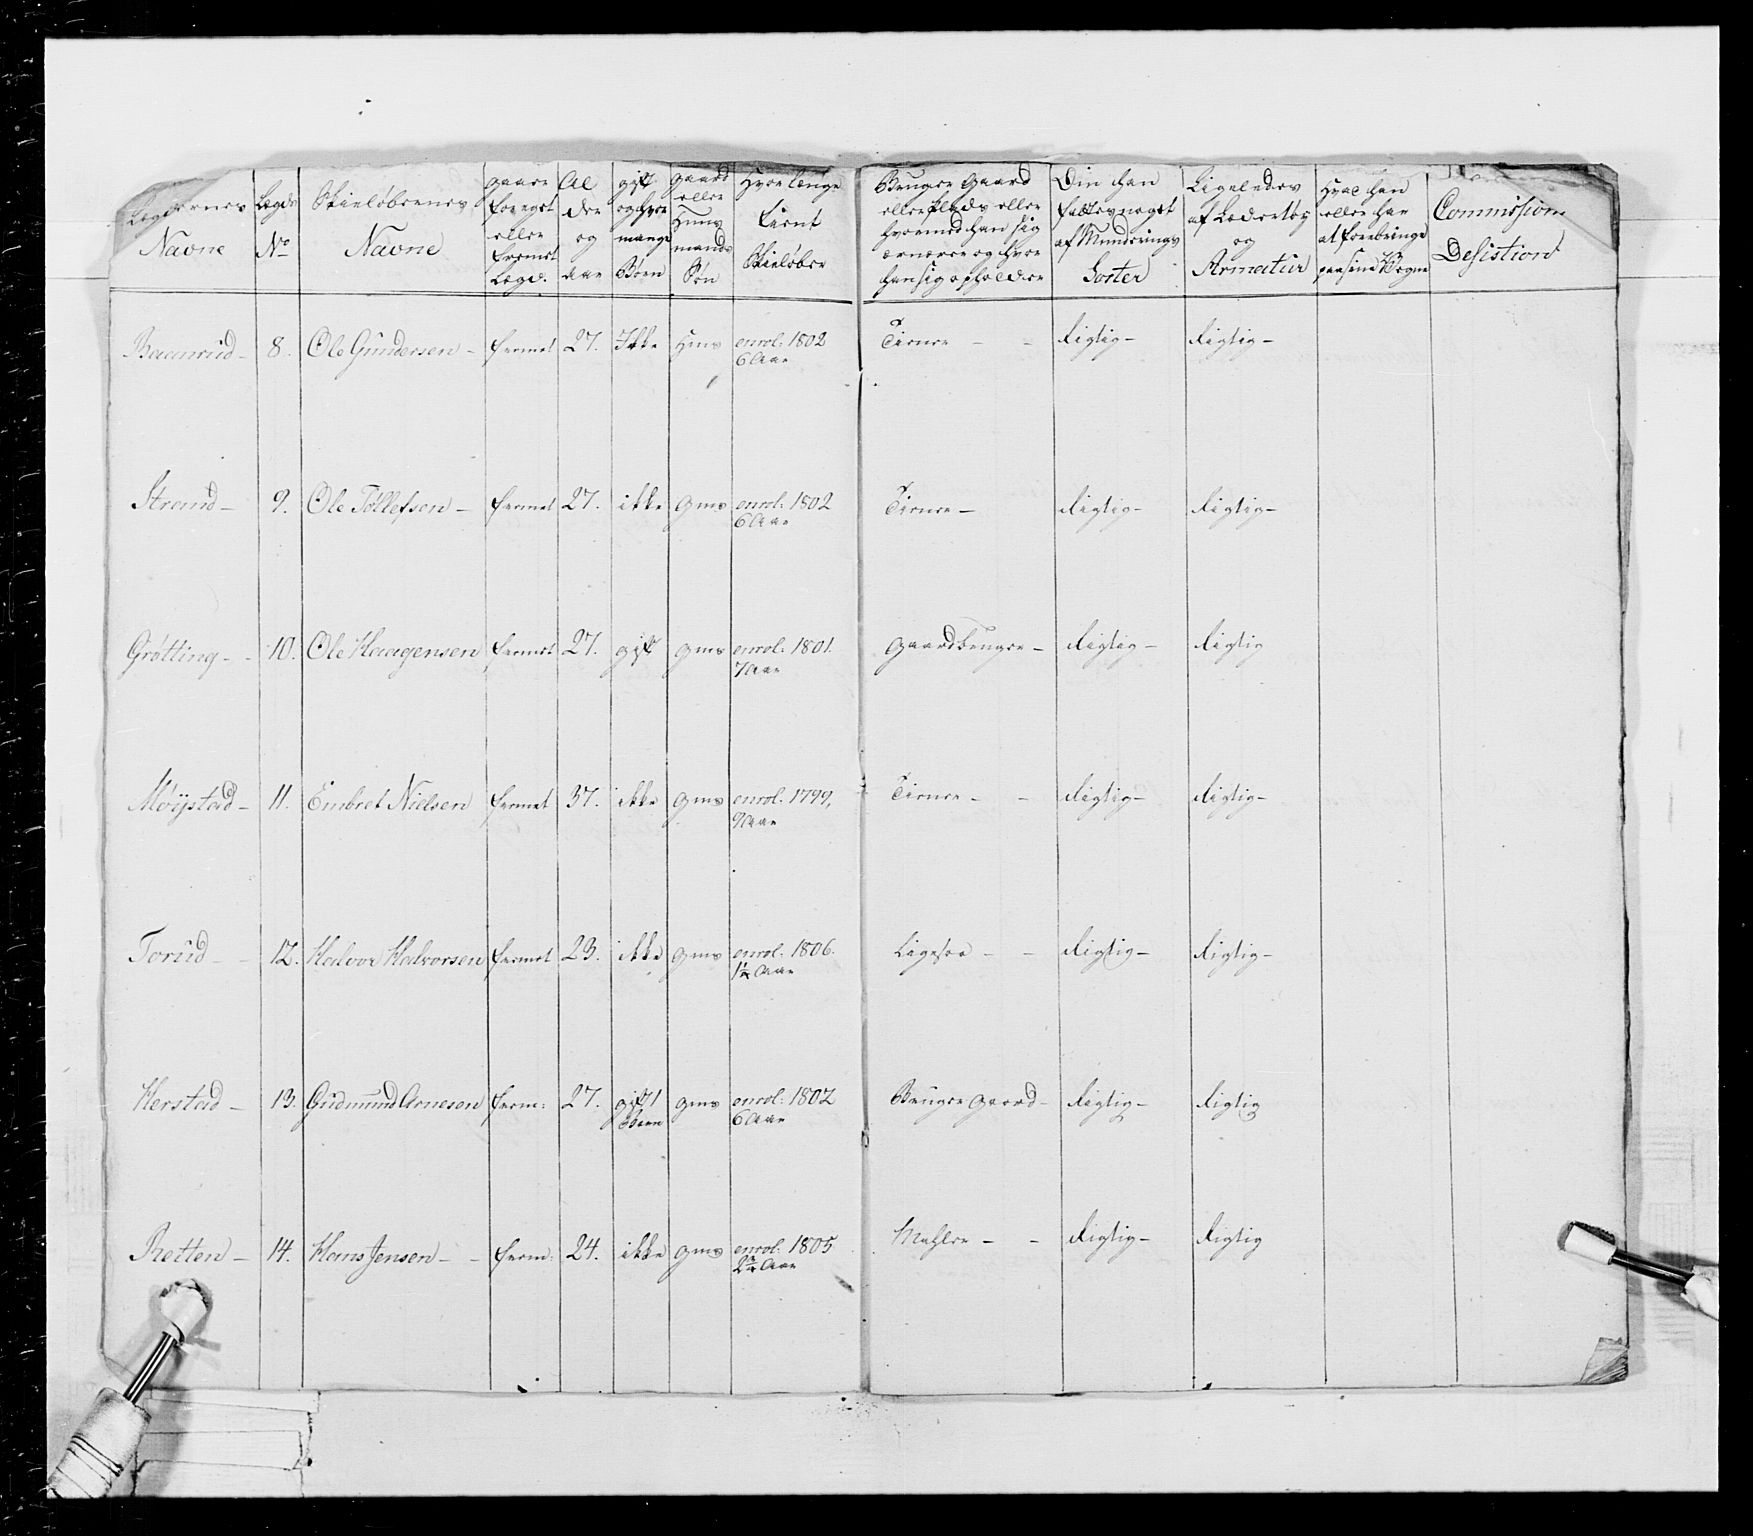 Lægdernes Navne | Lægds No | Skieløbernes Navne | gaaer for eget eller fremet Lægd. | Al der og Aar | gift og hvor mange Børn | gaard eller Huus mands Søn | Hvor længe tient Skieløber | Bruger gaard eller Plads eller hvormed han sig ernærer og hvor han sig opholder | Om han fattes noget af Munderings Sorter | Ligeledes af Lædertøy og Armatur | Hvad han eller har at frembringe paa sine Vegne | Commissions Desistion
Baanrud - | 8. | Ole Gundersen - | fremet | 27. | Ikke | Hms | enrol: 1802 6 Aar | Tiener - - | Rigtig - | Rigtig -
Strand - | 9. | Ole Tøllefsen - | fremet | 27. | ikke | gms | enrol: 1802 6 Aar | Tiener - | Rigtig - | Rigtig -
Grøtting - - | 10. | Ole Haagensen | fremet | 27. | gift | gms | enrol: 1801. 7 Aar | gaardbruger - | Rigtig - | Rigtig
Møystad - | 11. | Embret Nielsen | fremet | 37. | ikke | gms | enrol: 1799, 9 Aar | Tiener - - | Rigtig - | Rigtig -
Torud - - | 12. | Halvor Halvorsen | fremet | 23. | ikke | gms | enrol: 1806. 1½ Aar | Ligesaa - - | Rigtig - | Rigtig -
Herstad - | 13. | Gudmund Arnesen | frem: | 27. | gift 1 Barn | gms | enrol: 1802 6 Aar | Bruger gaard - | Rigtig - | Rigtig
Retten - | 14. | Hans Jensen - - | frem: | 24. | ikke | gms | enrol: 1805 2½ Aar | Mahler - - | Rigtig - | Rigtig